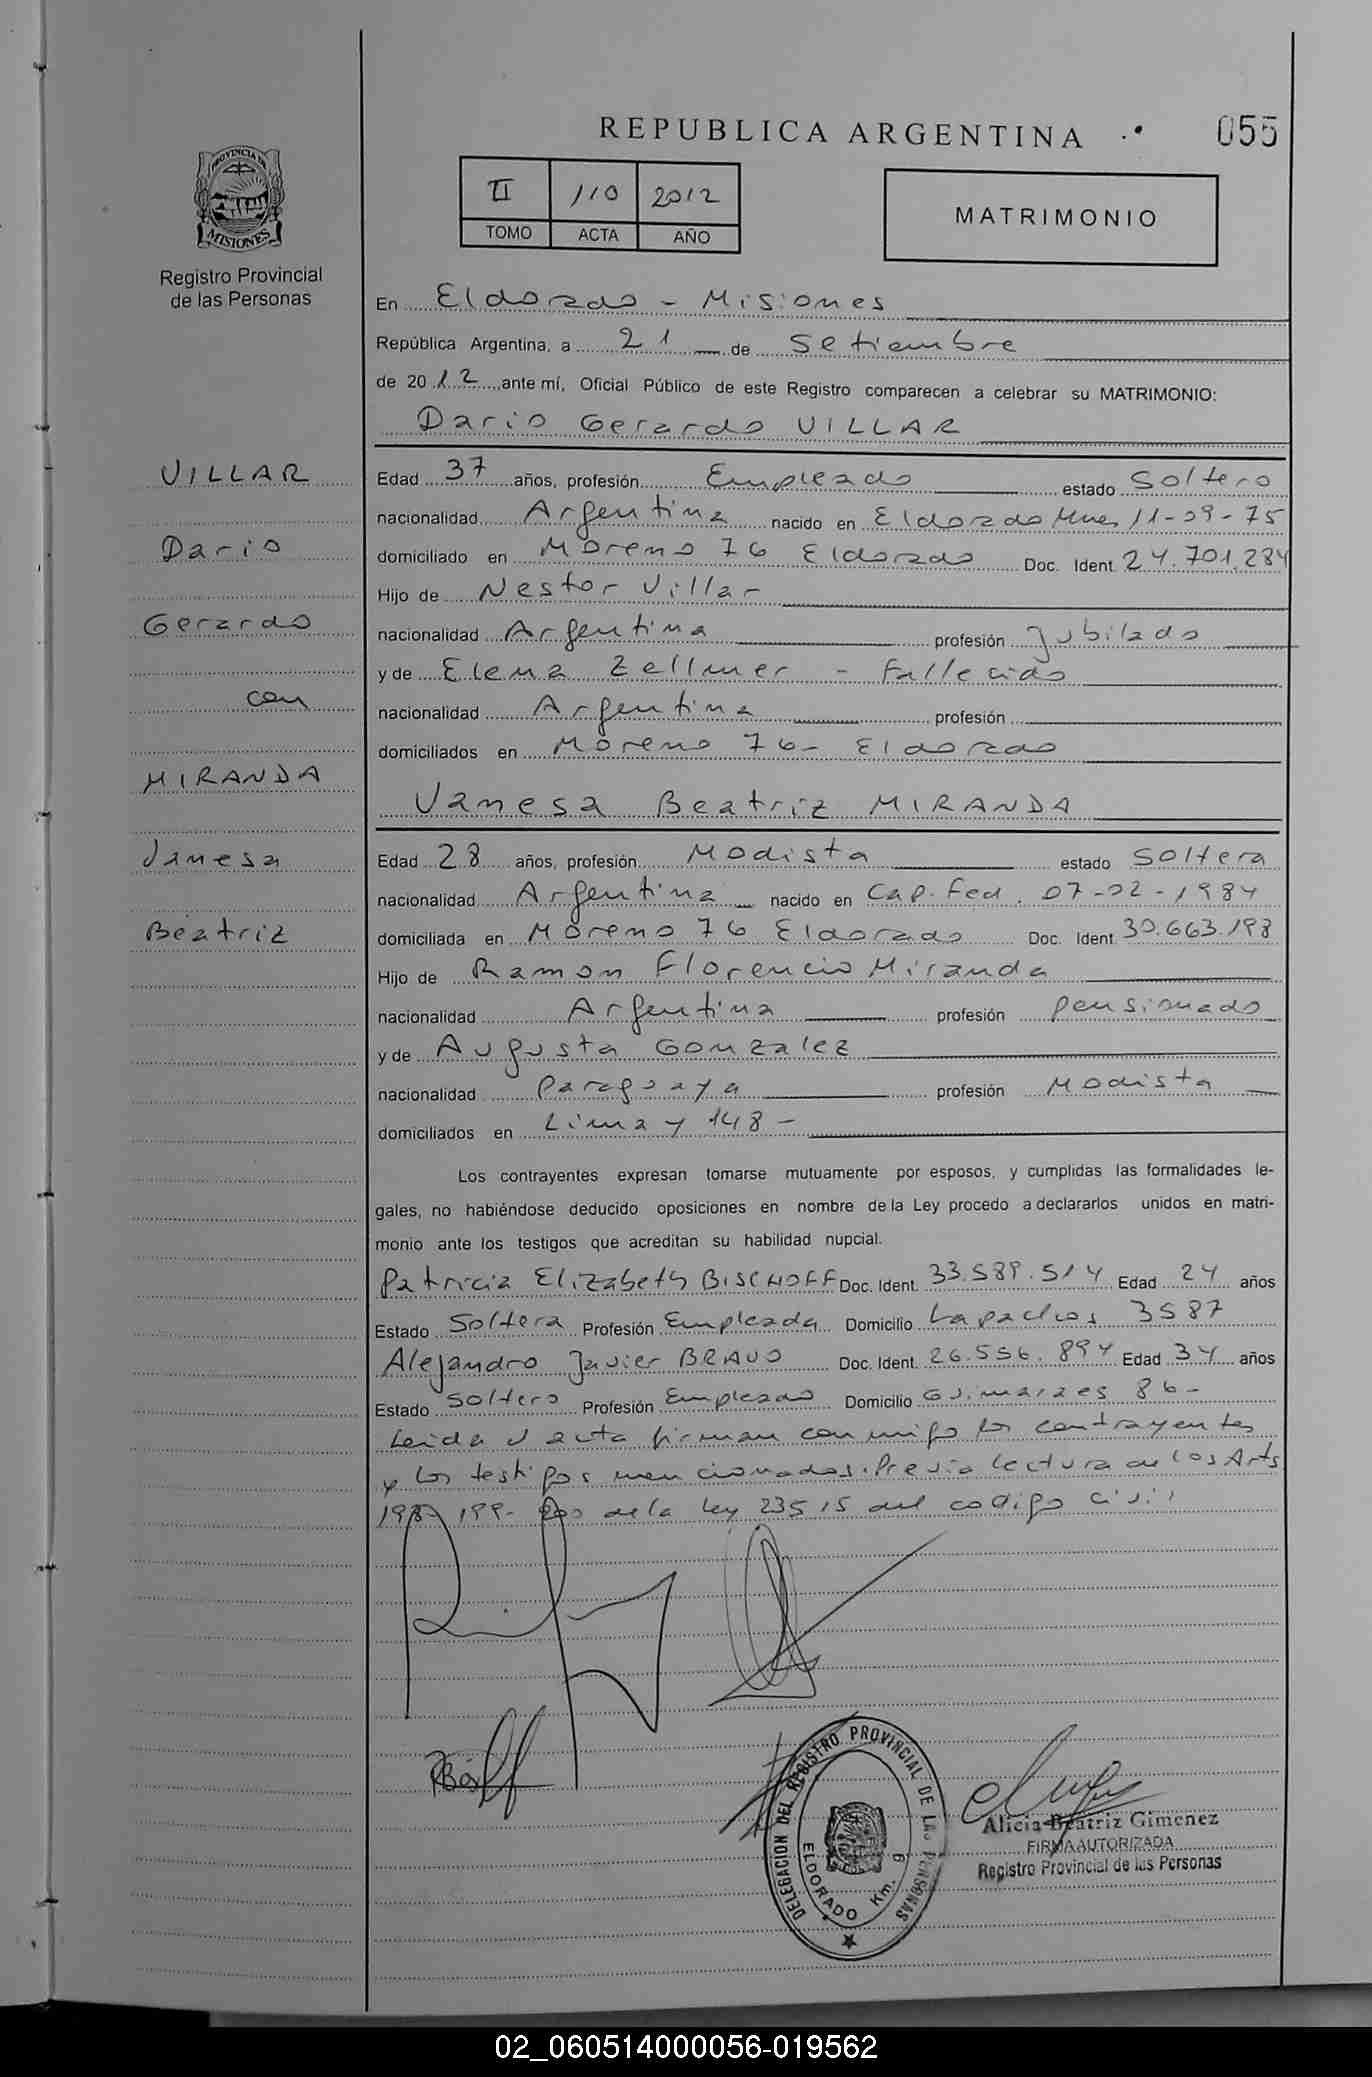 REPUBLICA ARGENTINA
055
II 110 2012
TOMO ACTA AÑO
MATRIMONIO
PROVINCIA DE
MISIONES
Registro Provincial
de las Personas
En Eldorado - Misiones
República Argentina, a 21 de Setiembre
de 2012, ante mí, Oficial Público de este Registro comparecen a celebrar su MATRIMONIO:
Dario Gerardo VILLAR
VILLAR
Dario
Gerardo
con
MIRANDA
Vanesa
Beatriz
Edad 37 años, profesión Empleado estado Soltero
nacionalidad Argentina nacido en Eldorado Mnes 11-09-75
domiciliado en Moreno 76 Eldorado Doc. Ident. 24.701.284
Hijo de Nestor Villar
nacionalidad Argentina profesión Jubilado
y de Elena Zellmer - Fallecido
nacionalidad Argentina profesión
domiciliados en Moreno 76- Eldorado
Vanesa Beatriz MIRANDA
Edad 28 años, profesión Modista estado Soltera
nacionalidad Argentina nacido en Cap. Fed. 07-02-1984
domiciliada en Moreno 76 Eldorado Doc. Ident. 30.663.193
Hijo de Ramon Florencio Miranda
nacionalidad Argentina profesión pensionado
y de Augusta Gonzalez
nacionalidad Paraguaya profesión Modista
domiciliados en Lima y 148 -
Los contrayentes expresan tomarse mutuamente por esposos, y cumplidas las formalidades le-
gales, no habiéndose deducido oposiciones en nombre de la Ley procedo a declararlos unidos en matri-
monio ante los testigos que acreditan su habilidad nupcial.
Patricia Elizabeth BISCHOFF Doc. Ident. 33.589.514 Edad 24 años
Estado Soltera Profesión Empleada Domicilio Lapachos 3587
Alejandro Javier BRAVO Doc. Ident. 26.556.894 Edad 34 años
Estado Soltero Profesión Empleado Domicilio Guimaraes 86-
Leida el acta firman conmigo los contrayentes
y los testigos mencionados. Previa lectura de los Arts
198- 199- 200 de la ley 23515 del codigo civil
DELEGACION DEL REGISTRO PROVINCIAL DE LAS PERSONAS
ELDORADO Km. 9
Alicia Beatriz Gimenez
FIRMA AUTORIZADA
Registro Provincial de las Personas
02_060514000056-019562